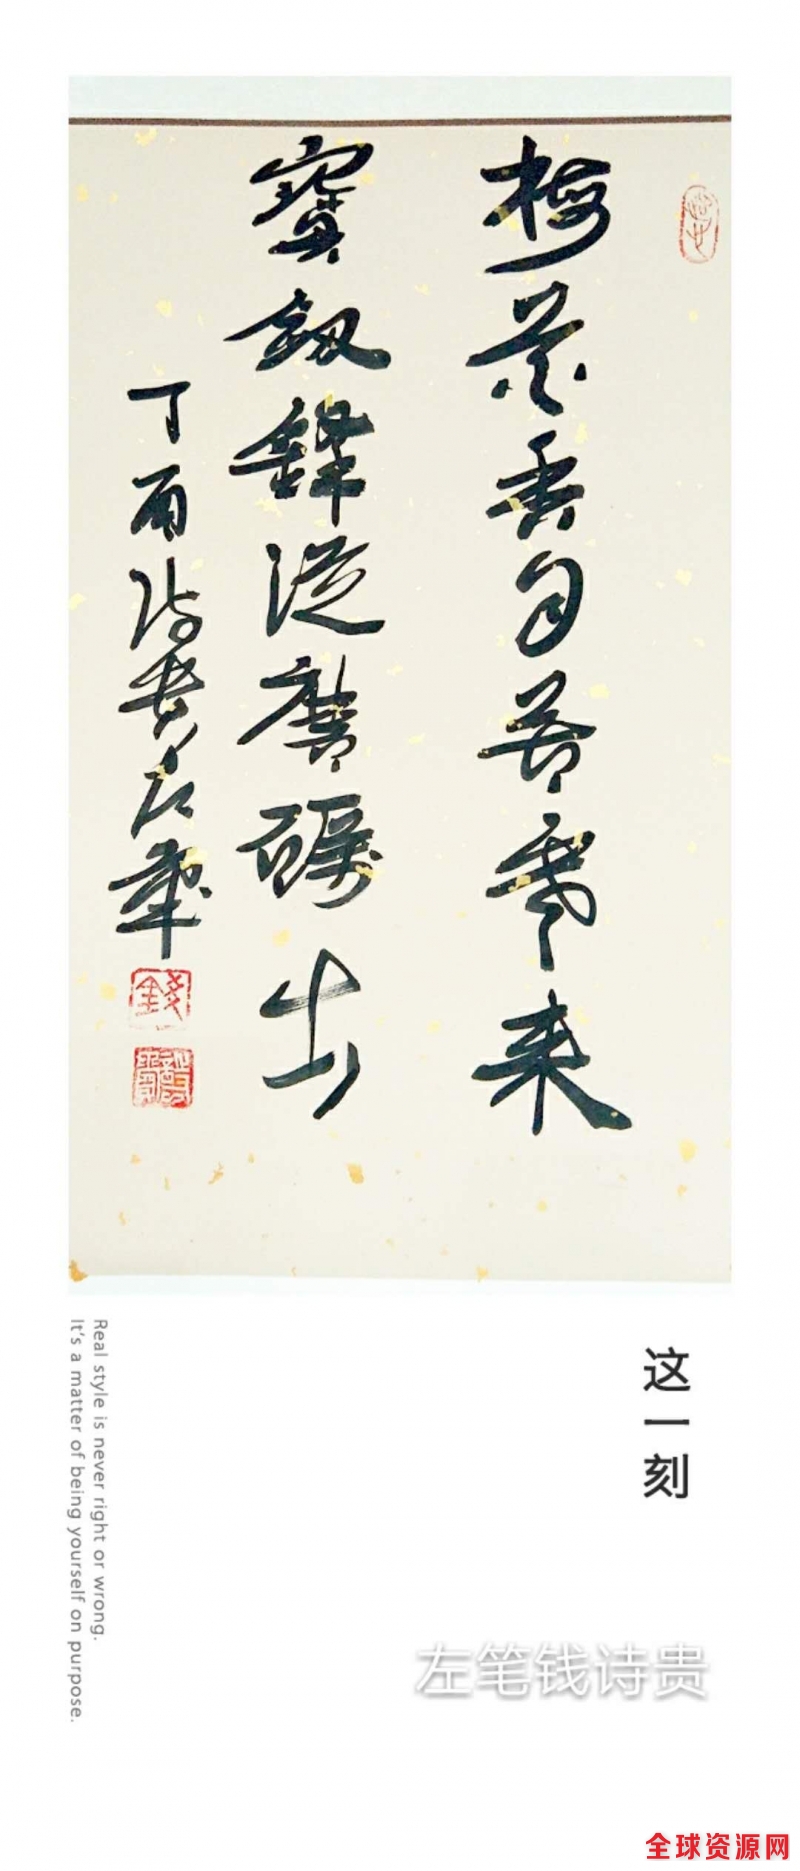 梅花香自苦寒来
寶劍鋒從磨礪出
丁酉詩貴左筆
錢
这一刻
Real style is never right or wrong.
It's a matter of being yourself on purpose.
左笔钱诗贵
全球资源网